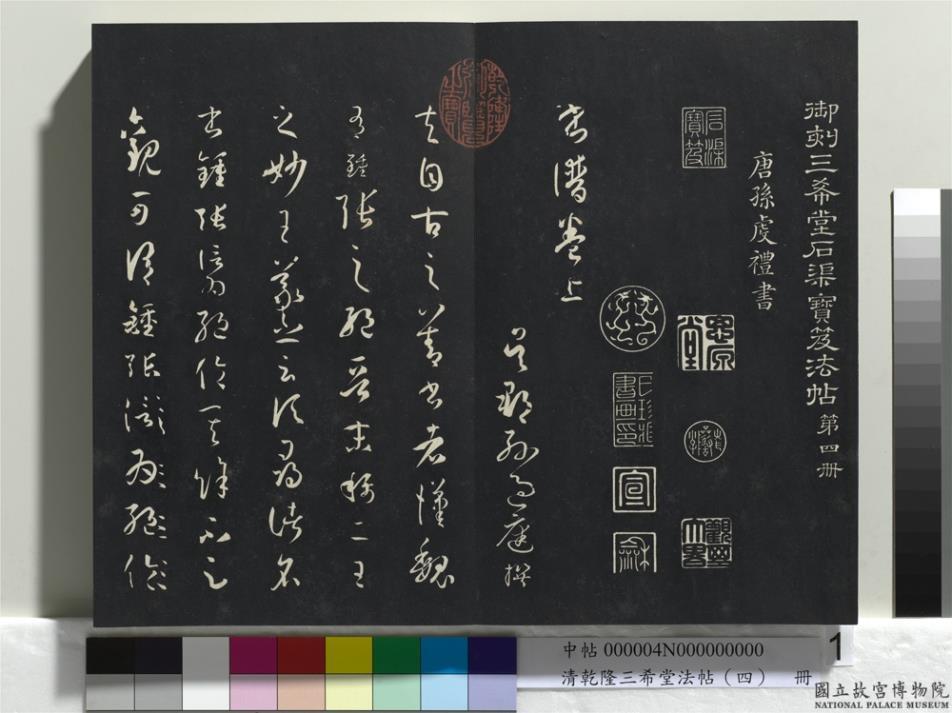 御刻三希堂石渠寶笈法帖 第四冊
唐孫虔禮書
石渠寶笈
宣
龢
書譜卷上
吳郡孫過庭撰
乾隆御覽之寶
夫自古之善書者漢魏
有鍾張之絕晉末稱二王
之妙王羲之云頃尋諸名
書鍾張信為絕倫其餘不足
觀可謂鍾張信為絕倫
中帖 000004N000000000
清乾隆三希堂法帖（四） 冊
1
國立故宮博物院
NATIONAL PALACE MUSEUM